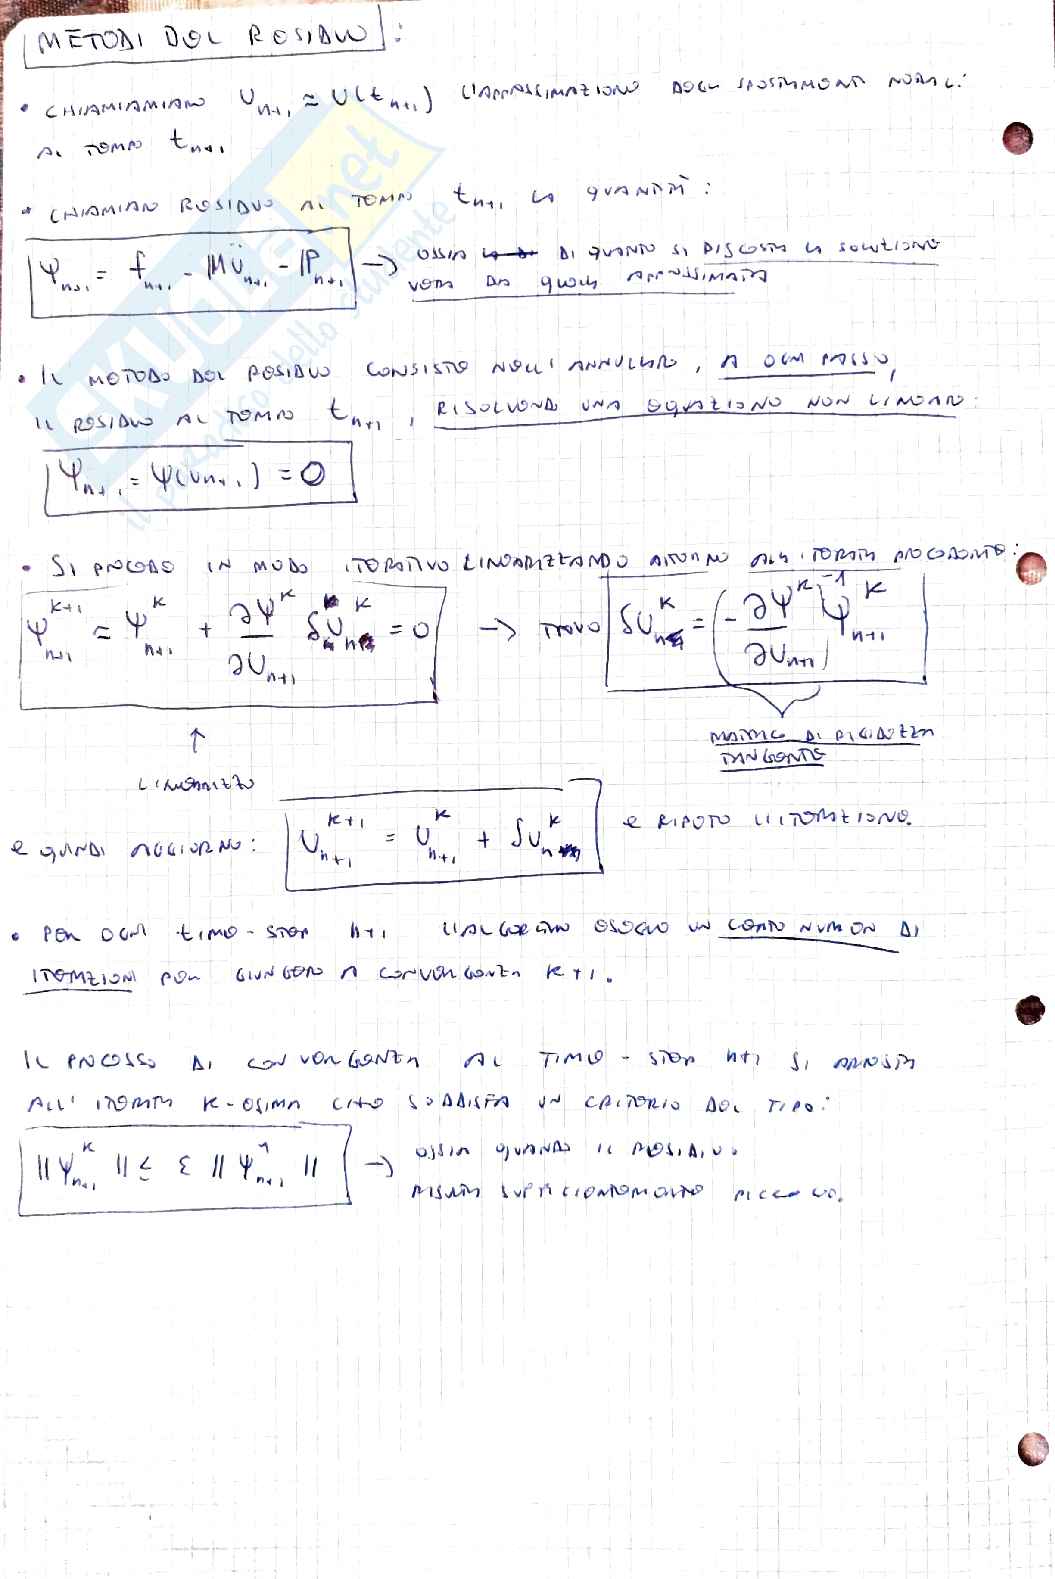 METODI DEL RESIDUO :
• CHIAMIAMO U_{n+1} ≈ U(t_{n+1}) L'APPROSSIMAZIONE DEGLI SPOSTAMENTI NODALI
AL TEMPO t_{n+1}
• CHIAMIAMO RESIDUO AL TEMPO t_{n+1} LA QUANTITÀ :
Ψ_{n+1} = f_{n+1} - M Ü_{n+1} - P_{n+1} → OSSIA DI QUANTO SI DISCOSTA LA SOLUZIONE
VERA DA QUELLA APPROSSIMATA
• IL METODO DEL RESIDUO CONSISTE NELL'ANNULLARE, A OGNI PASSO,
IL RESIDUO AL TEMPO t_{n+1}, RISOLVENDO UNA EQUAZIONE NON LINEARE:
Ψ_{n+1} = Ψ(U_{n+1}) = 0
• SI PROCEDE IN MODO ITERATIVO LINEARIZZANDO ATTORNO ALL'ITERATA PRECEDENTE:
Ψ^{k+1}_{n+1} ≈ Ψ^k_{n+1} + ∂Ψ^k/∂U_{n+1} δU^k_n = 0 → TROVO δU^k_n = (-∂Ψ^k/∂U_{n+1})^{-1} Ψ^k_{n+1}
MATRICE DI RIGIDEZZA
TANGENTE
↑
LINEARIZZO
E QUINDI AGGIORNO: U^{k+1}_{n+1} = U^k_{n+1} + δU^k_n E RIPETO L'ITERAZIONE.
• PER OGNI TIME-STEP n+1 L'ALGORITMO ESEGUE UN CERTO NUMERO DI
ITERAZIONI PER GIUNGERE A CONVERGENZA K+1.
IL PROCESSO DI CONVERGENZA AL TIME-STEP n+1 SI ARRESTA
ALL'ITERATA K-ESIMA CHE SODDISFA UN CRITERIO DEL TIPO:
||Ψ^k_{n+1}|| ≤ ε ||Ψ^1_{n+1}|| → OSSIA QUANDO IL RESIDUO
RISULTA SUFFICIENTEMENTE PICCOLO.
SKUOLA.net
il paradiso dello studente